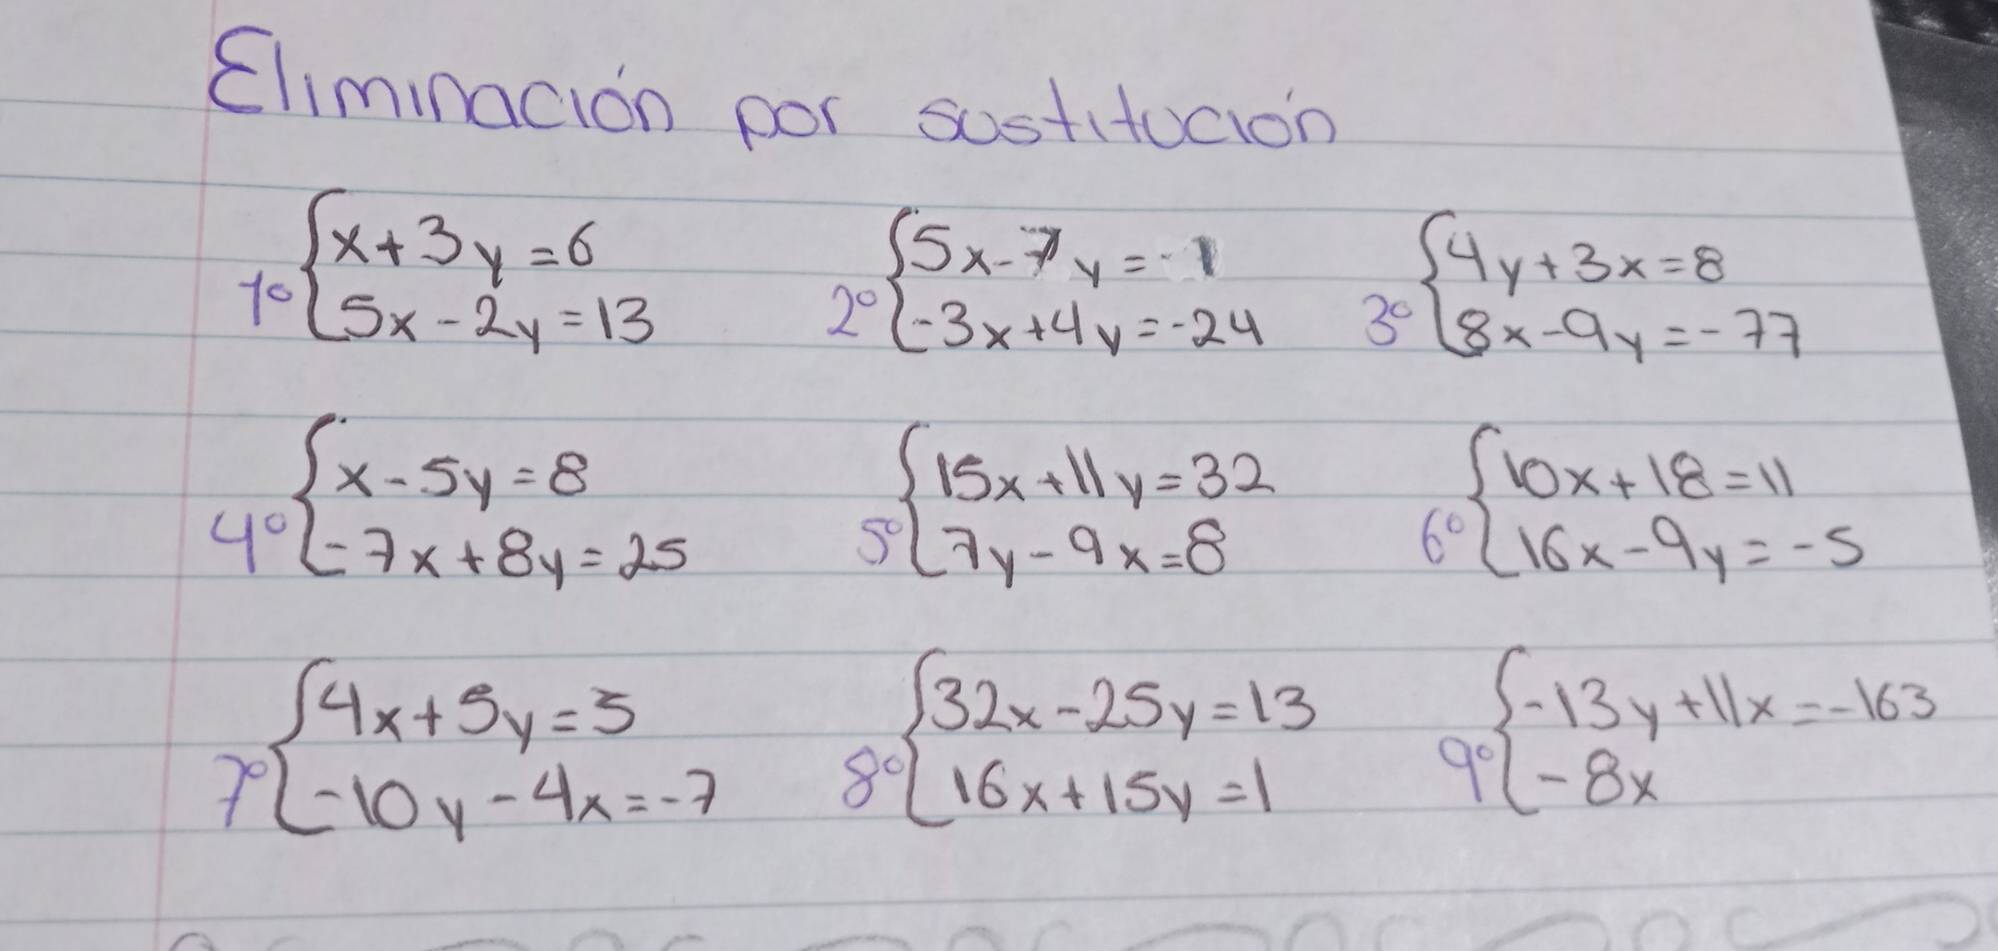 Eliminación por sustitución
1° { x+3y=6
5x-2y=13
2° { 5x-7y=-1
-3x+4y=-24
3° { 4y+3x=8
8x-9y=-77
4° { x-5y=8
-7x+8y=25
5° { 15x+11y=32
7y-9x=8
6° { 10x+18=11
16x-9y=-5
7° { 4x+5y=5
-10y-4x=-7
8° { 32x-25y=13
16x+15y=1
9° { -13y+11x=-163
-8x